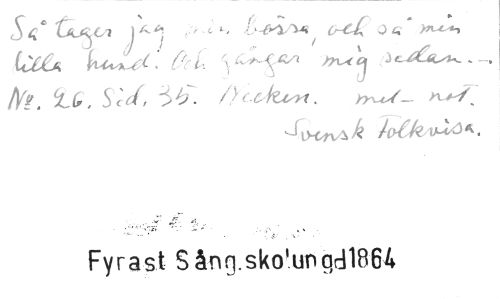 Så tager jag min bössa, och så min
lilla hund. Och gångar mig sedan. –
Nº. 26. Sid. 35. Necken. mel– not.
Svensk Folkvisa.
Fyrast Sång.sko!ungd1864